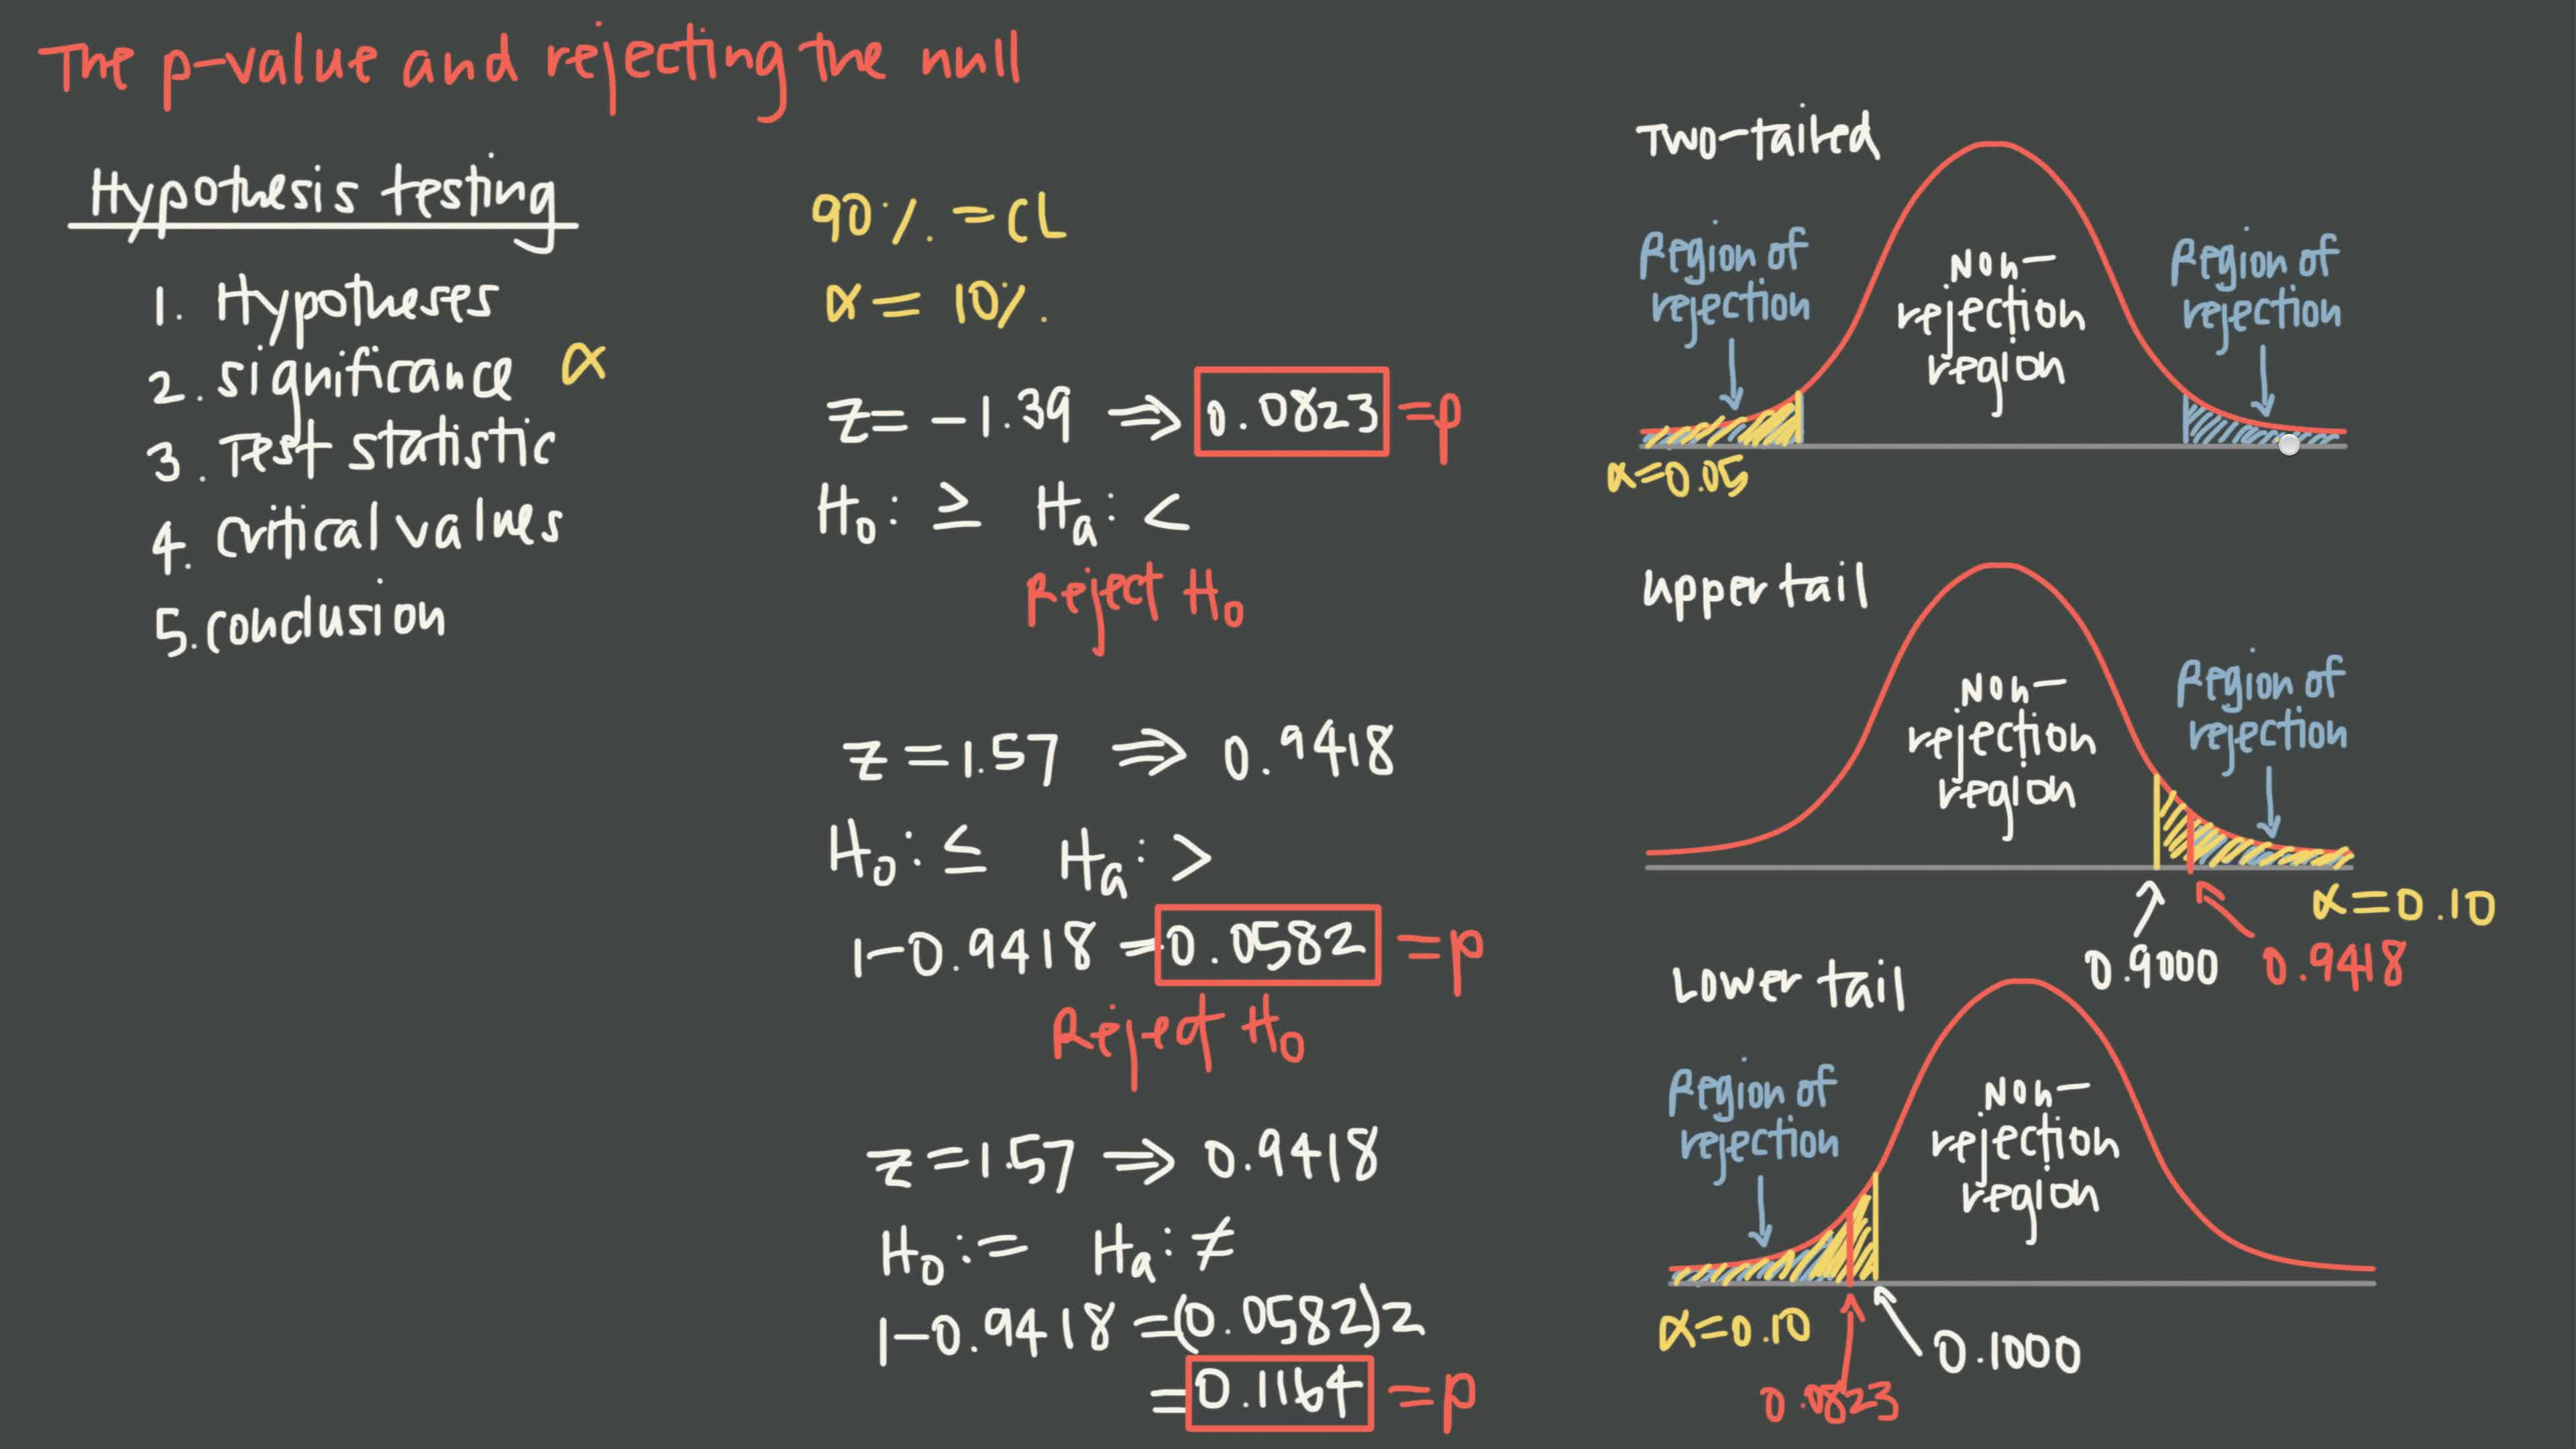 The p-value and rejecting the null
Hypothesis testing
1. Hypotheses
2. significance α
3. Test statistic
4. critical values
5. conclusion
90% = CL
α = 10%
z = -1.39 ⇒ 0.0823 = p
H₀: ≥ Hₐ: <
Reject H₀
z = 1.57 ⇒ 0.9418
H₀: ≤ Hₐ: >
1-0.9418 = 0.0582 = p
Reject H₀
z = 1.57 ⇒ 0.9418
H₀: = Hₐ: ≠
1-0.9418 = (0.0582)2
= 0.1164 = p
Two-tailed
Region of
rejection
Non-
rejection
region
Region of
rejection
α=0.05
upper tail
Non-
rejection
region
Region of
rejection
α=0.10
0.9000
0.9418
Lower tail
Region of
rejection
Non-
rejection
region
α=0.10
0.1000
0.0823